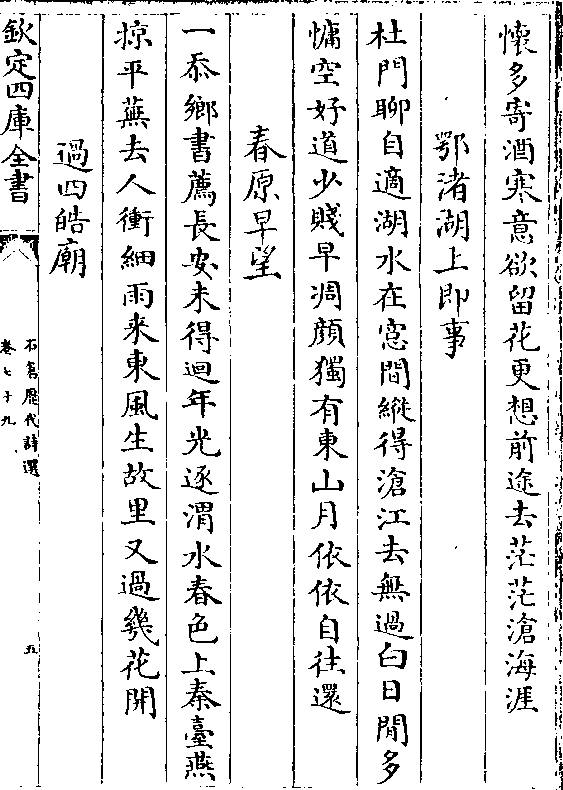 懷多寄酒寒意欲留花更想前途去茫茫滄海涯
鄂渚湖上即事
杜門聊自適湖水在窻間縱得滄江去無過白日閒多
慵空好道少賤早凋顔獨有東山月依依自往還
春原早望
一忝鄉書薦長安未得迴年光逐渭水春色上秦臺燕
掠平蕪去人衝細雨来東風生故里又過幾花開
過四皓廟
欽定四庫全書
石倉歷代詩選
卷七十九
五